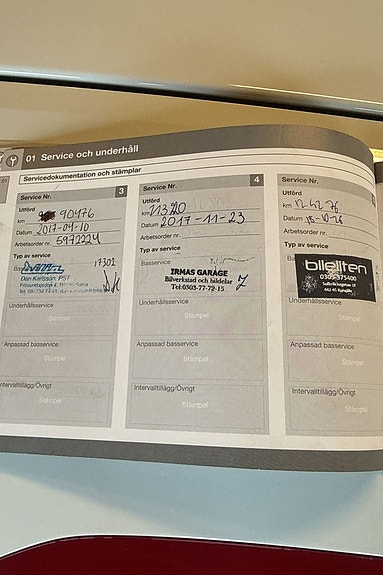 01 Service och underhåll
Servicedokumentation och stämplar
Service Nr. 3
Utförd
km 90476
Datum 2017-04-10
Arbetsorder nr. 5972224
Typ av service
17302
Dan Karlsson, PST
Underhållsservice
Stämpel
Anpassad basservice
Stämpel
Intervalltillägg/Övrigt
Stämpel
Service Nr. 4
Utförd
km 11320
Datum 2017-11-23
Arbetsorder nr.
Typ av service
Basservice
IRMAS GARAGE
Bilverkstad och bildelar
Tel:0303-77-72-15
Underhållsservice
Stämpel
Anpassad basservice
Stämpel
Intervalltillägg/Övrigt
Stämpel
Service Nr.
Utförd
km
Datum
Arbetsorder nr.
Typ av service
bileliten
0303-375400
Underhållsservice
Stämpel
Anpassad basservice
Stämpel
Intervalltillägg/Övrigt
Stämpel